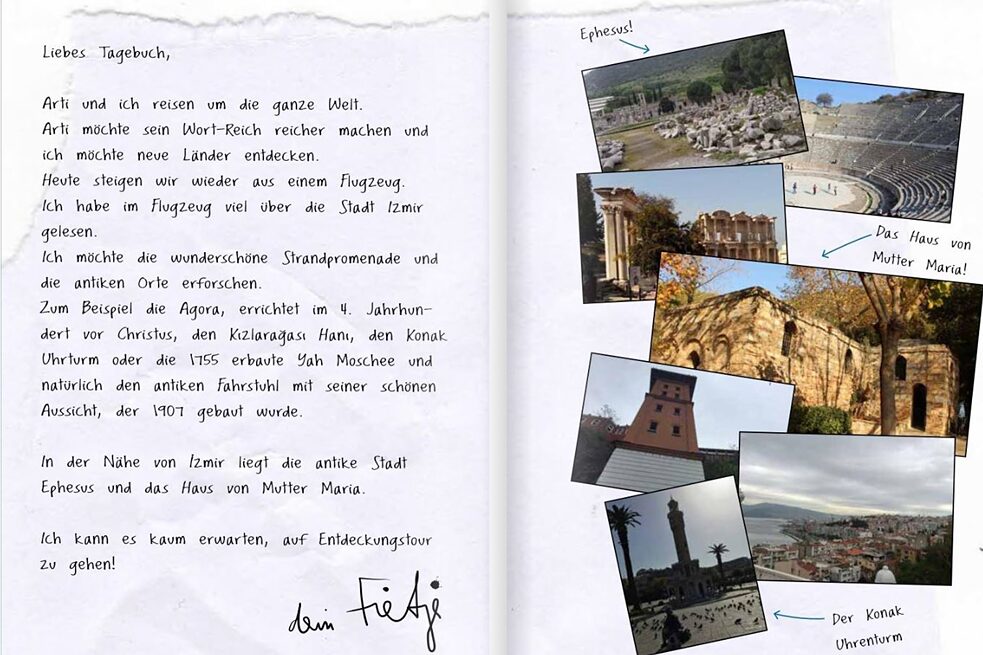 Liebes Tagebuch,
Arti und ich reisen um die ganze Welt.
Arti möchte sein Wort-Reich reicher machen und
ich möchte neue Länder entdecken.
Heute steigen wir wieder aus einem Flugzeug.
Ich habe im Flugzeug viel über die Stadt Izmir
gelesen.
Ich möchte die wunderschöne Strandpromenade und
die antiken Orte erforschen.
Zum Beispiel die Agora, errichtet im 4. Jahrhun-
dert vor Christus, den Kızlarağası Hanı, den Konak
Uhrturm oder die 1755 erbaute Yah Moschee und
natürlich den antiken Fahrstuhl mit seiner schönen
Aussicht, der 1907 gebaut wurde.
In der Nähe von Izmir liegt die antike Stadt
Ephesus und das Haus von Mutter Maria.
Ich kann es kaum erwarten, auf Entdeckungstour
zu gehen!
dein Fietje
Ephesus!
Das Haus von
Mutter Maria!
Der Konak
Uhrenturm